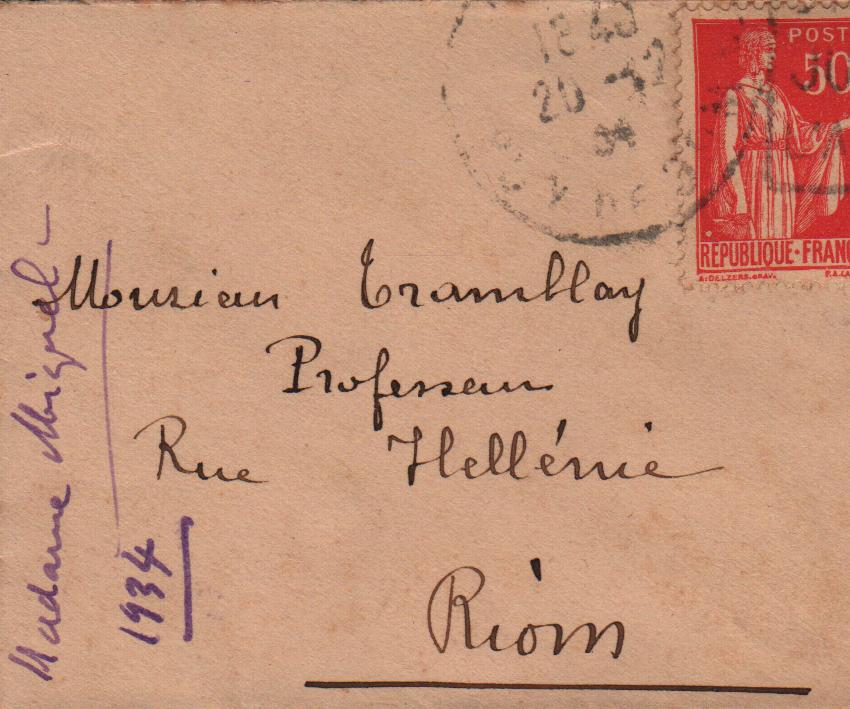 18 40
20 -12
34
POST
50
RÉPUBLIQUE·FRANÇ
Monsieur Tramblay
Professeur
Rue Hellénie
Riom
Madame Miguel
1934